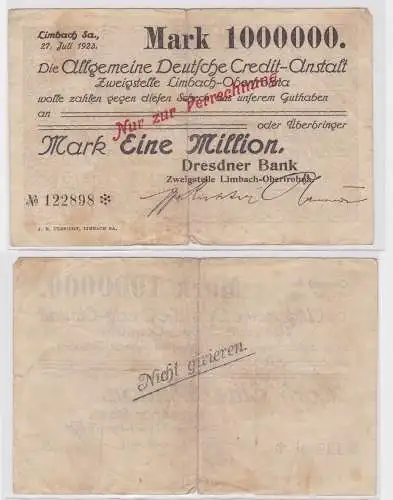 Limbach Sa.,
27. Juli 1923.
Mark 1000000.
Die Allgemeine Deutsche Credit-Anstalt
Zweigstelle Limbach-Oberfrohna
wolle zahlen gegen diesen Scheck aus unserem Guthaben
an
oder Überbringer
Nur zur Verrechnung
Mark Eine Million.
Dresdner Bank
Zweigstelle Limbach-Oberfrohna.
№ 122898 ✻
LIMBACH SA.
Nicht girieren.